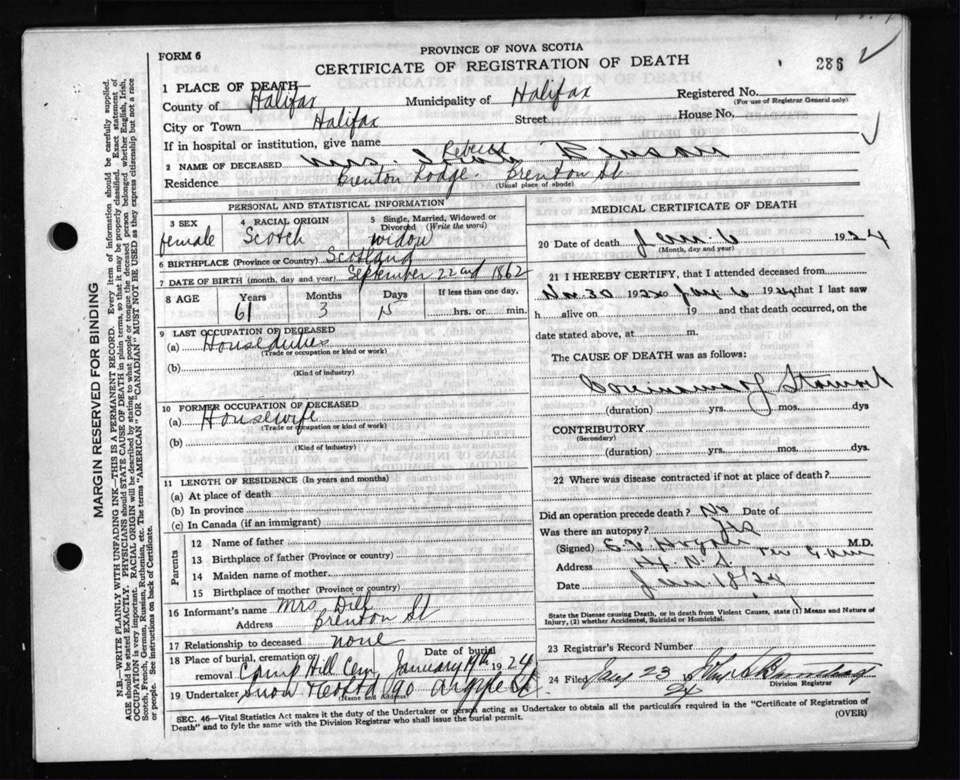 PROVINCE OF NOVA SCOTIA
FORM 6
CERTIFICATE OF REGISTRATION OF DEATH
286
1 PLACE OF DEATH—
County of Halifax Municipality of Halifax Registered No.
(For use of Registrar General only)
City or Town Halifax Street House No.
If in hospital or institution, give name
Rebecca
2 NAME OF DECEASED Mrs.
Residence Brenton Lodge. Brenton St
(Usual place of abode)
PERSONAL AND STATISTICAL INFORMATION
3 SEX
female
4 RACIAL ORIGIN
Scotch
5 Single, Married, Widowed or Divorced (Write the word)
Widow
6 BIRTHPLACE (Province or Country) Scotland
7 DATE OF BIRTH (month, day and year) September 22nd 1862
8 AGE Years Months Days If less than one day,
61 3 hrs. or min.
9 LAST OCCUPATION OF DECEASED
(a) House duties
(Trade or occupation or kind or work)
(b)
(Kind of industry)
10 FORMER OCCUPATION OF DECEASED
(a) Housewife
(Trade or occupation or kind of work)
(b)
(Kind of industry)
11 LENGTH OF RESIDENCE (In years and months)
(a) At place of death
(b) In province
(c) In Canada (if an immigrant)
Parents
12 Name of father
13 Birthplace of father (Province or country)
14 Maiden name of mother
15 Birthplace of mother (Province or country)
16 Informant's name Mrs Dill
Address Brenton St
17 Relationship to deceased none
18 Place of burial, cremation or removal Camp Hill Cem
Date of burial January 1924
19 Undertaker Snow 90 Argyle St
(Name and Address)
MEDICAL CERTIFICATE OF DEATH
20 Date of death Jan. 6 1924
(Month, day and year)
21 I HEREBY CERTIFY, that I attended deceased from
30 192 Jan 6 1924 that I last saw
h alive on 19 and that death occurred, on the
date stated above, at m.
The CAUSE OF DEATH was as follows:
(duration) yrs. mos. dys
CONTRIBUTORY
(Secondary)
(duration) yrs. mos. dys.
22 Where was disease contracted if not at place of death?
Did an operation precede death? No Date of
Was there an autopsy?
(Signed) M.D.
Address
Date Jan 18/24
State the Disease causing Death, or in death from Violent Causes, state (1) Means and Nature of
Injury, (2) whether Accidental, Suicidal or Homicidal.
23 Registrar's Record Number
24 Filed Jany 23
24
Division Registrar
SEC. 46—Vital Statistics Act makes it the duty of the Undertaker or person acting as Undertaker to obtain all the particulars required in the "Certificate of Registration of
Death" and to fyle the same with the Division Registrar who shall issue the burial permit.
(OVER)
MARGIN RESERVED FOR BINDING
N.B.—WRITE PLAINLY WITH UNFADING INK—THIS IS A PERMANENT RECORD. Every item of information should be carefully supplied.
AGE should be stated EXACTLY. PHYSICIANS should STATE CAUSE OF DEATH in plain terms, so that it may be properly classified. Exact statement of
OCCUPATION is very important. RACIAL ORIGIN will be described by stating to what people or tongue the deceased person belonged whether English, Irish,
Scotch, French, German, Russian, Ruthenian, etc. The terms "AMERICAN" OR "CANADIAN" MUST NOT BE USED as they express citizenship but not a race
or people. See instructions on back of Certificate.